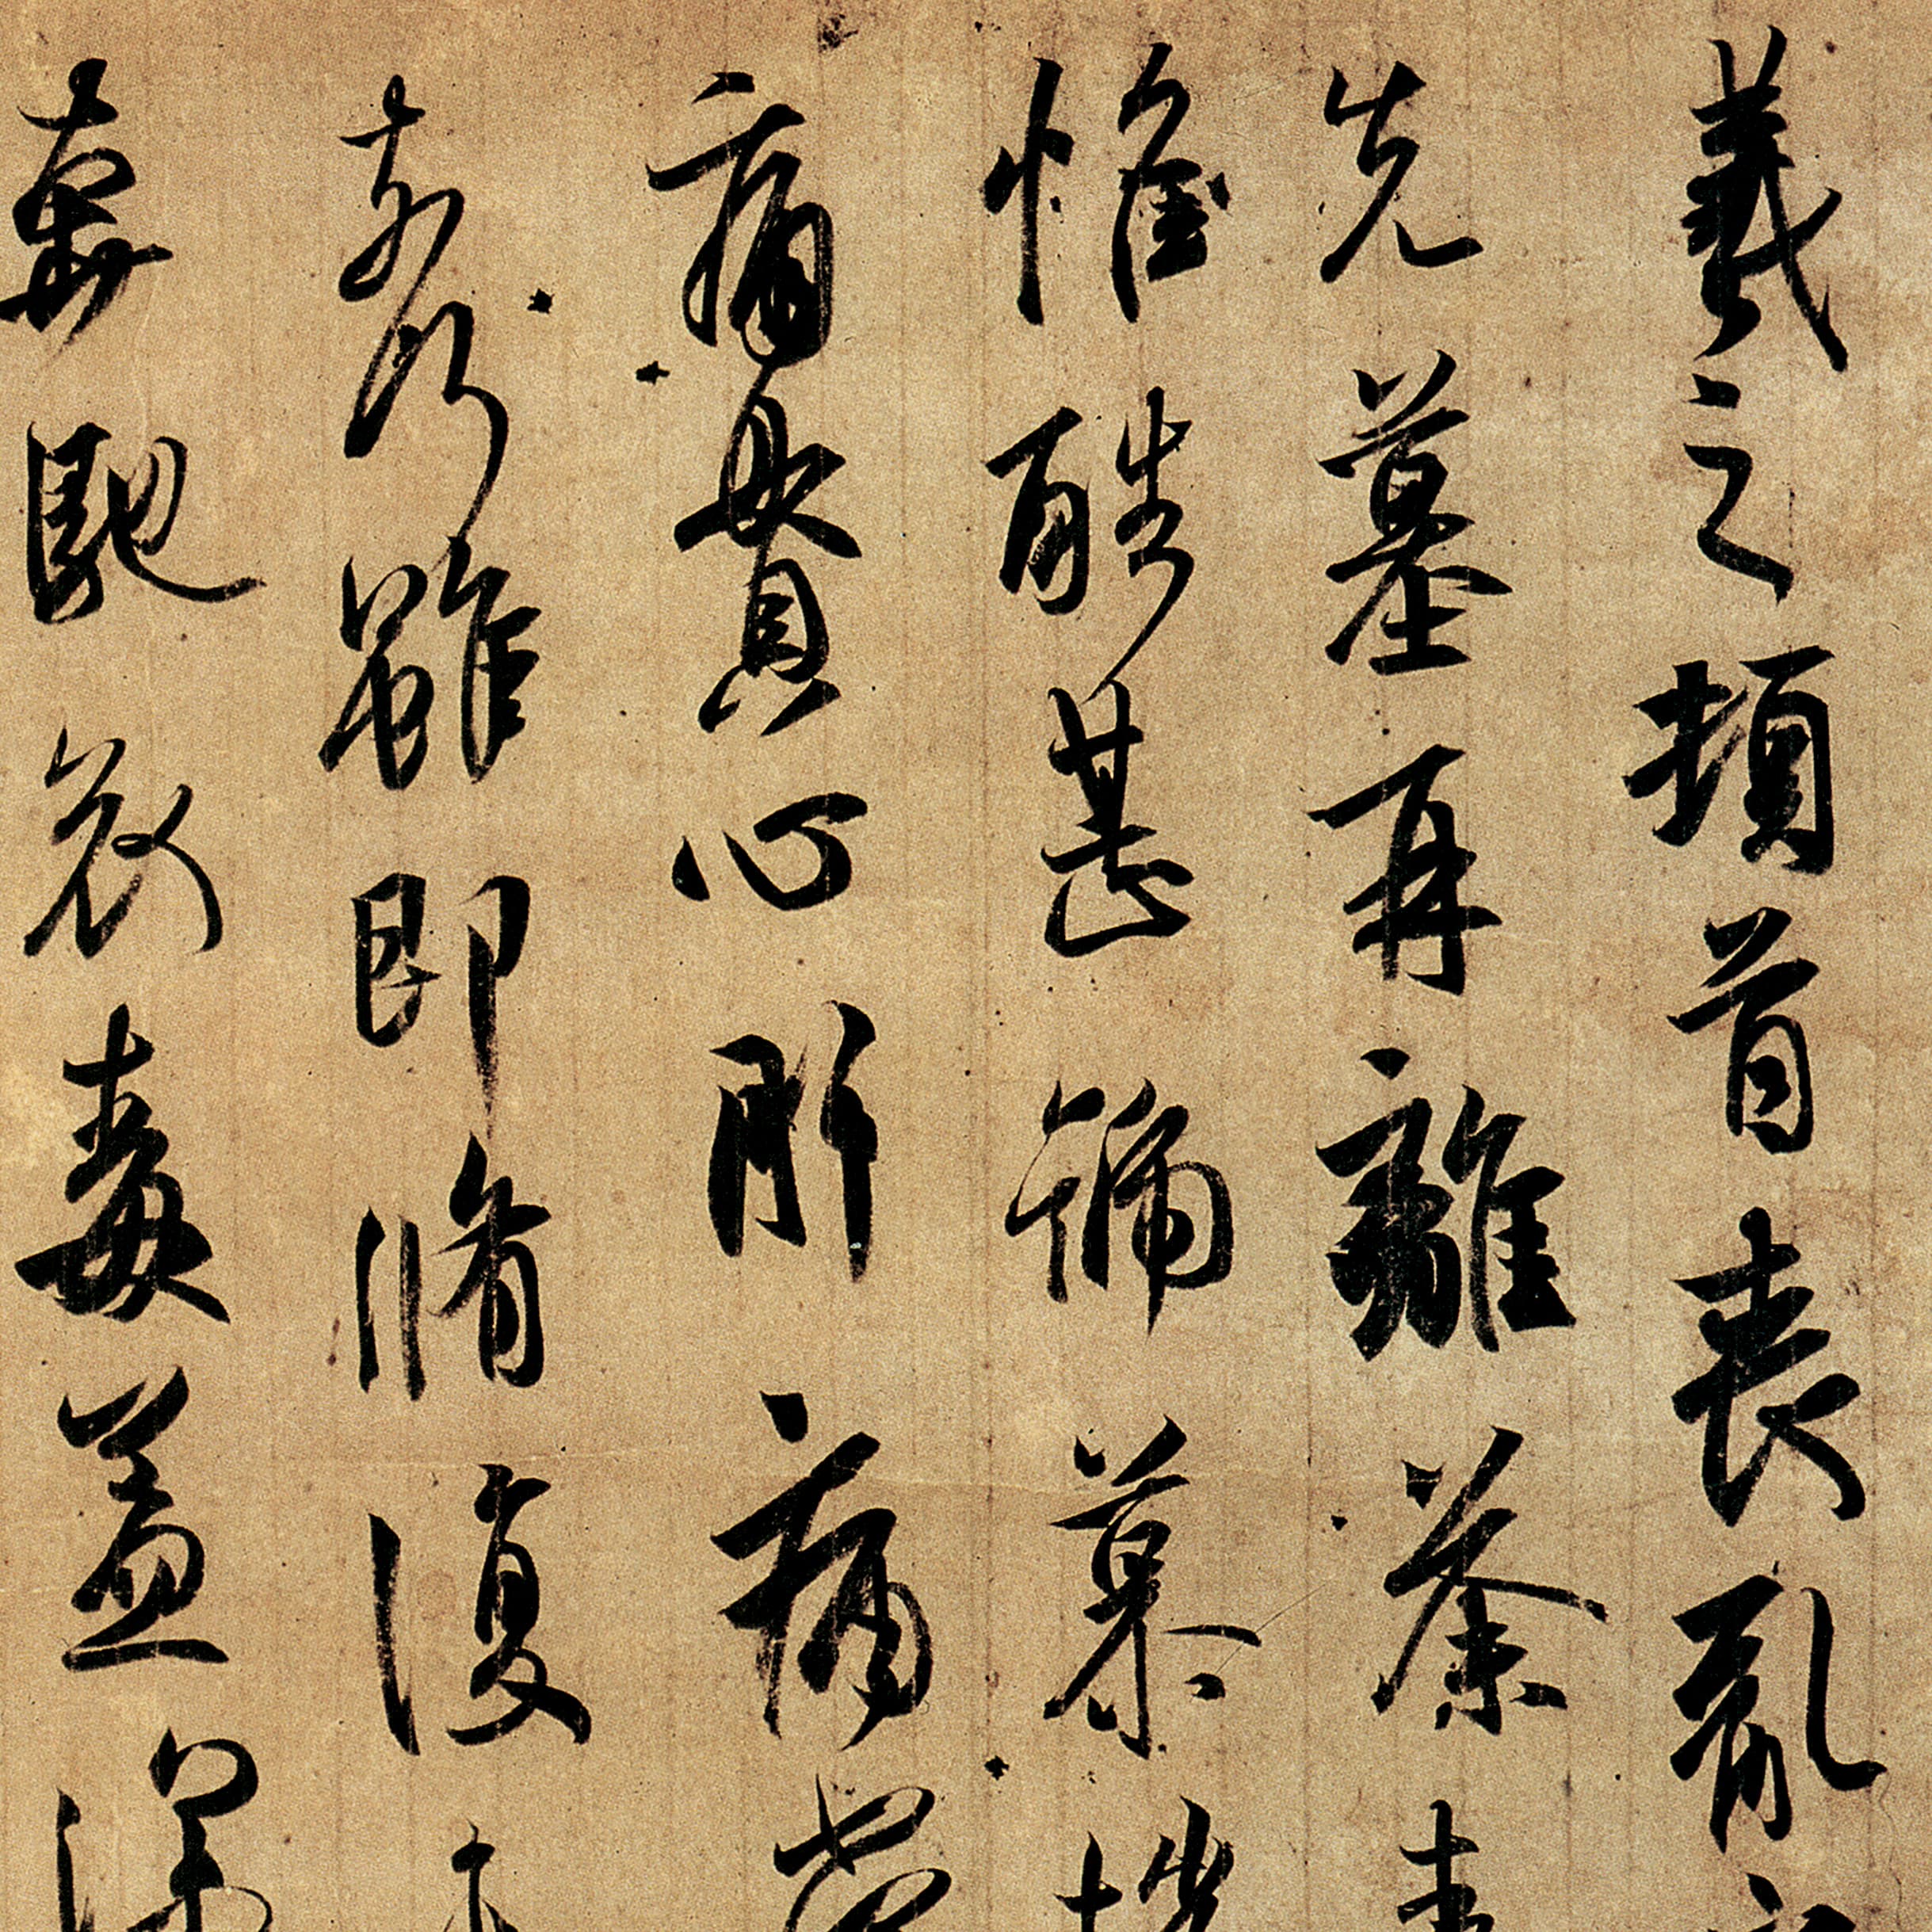 羲之頓首喪亂
先墓再離荼
惟酷甚號慕摧
痛貫心肝痛當
奈何雖即脩復
奔馳哀毒益深